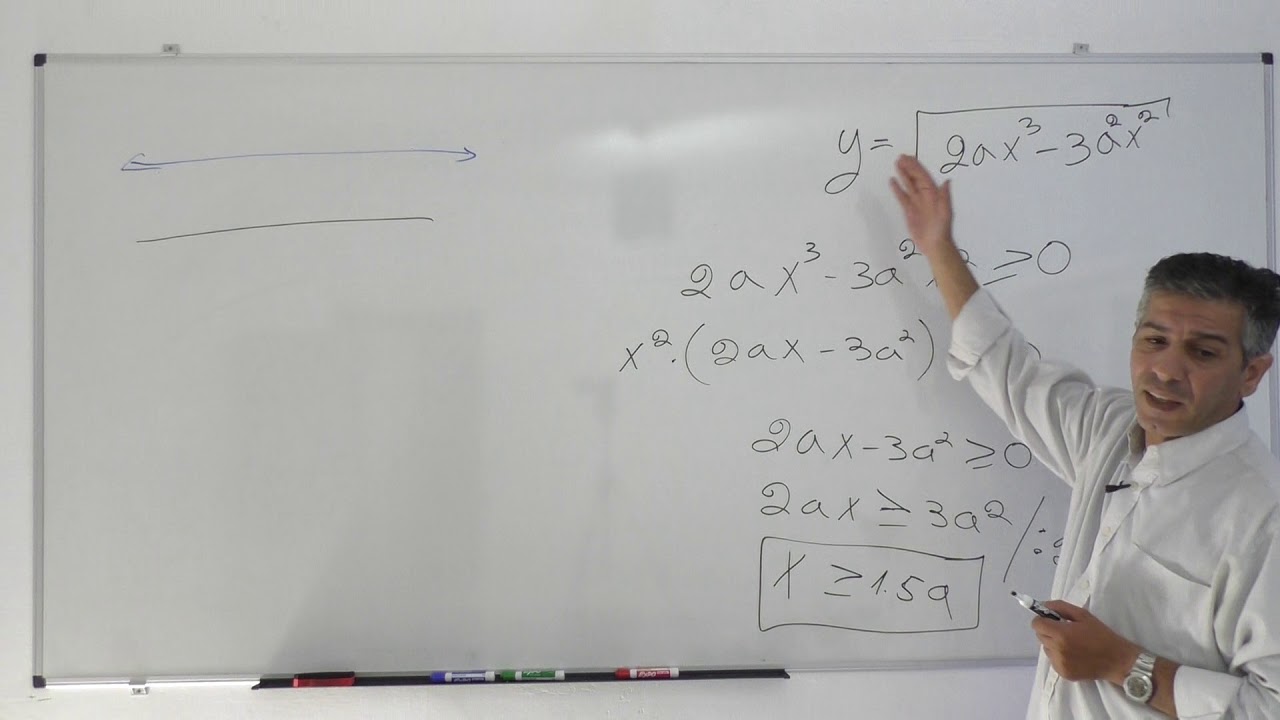 y = √2ax³ - 3a²x²
2ax³ - 3a² ≥ 0
x² · (2ax - 3a²)
2ax - 3a² ≥ 0
2ax ≥ 3a² / :
x ≥ 1.5a
EXPO